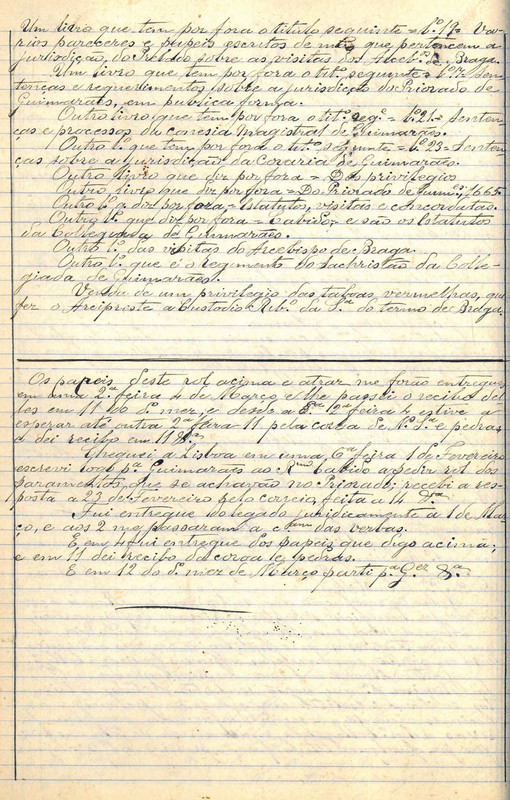 Um livro que tem por fora o titulo seguinte = L.º 19 = Va-
rios pareceres e papeis escritos de mão que pertencem a
jurisdição do Prelado sobre as visitas dos Arceb.os de Braga.
Um livro que tem por fora o tit.º seguinte = L.º 27 = Sen-
tenças e requerimentos sobre a jurisdição do Priorado de
Guimarães, em publica forma.
Outro livro que tem por fora o tit.º seg.º = L.º 21 = Senten-
ças e processos da conesia Magistral de Guimarães.
Outro l.º que tem por fora o tit.º seguinte = L.º 23 = Senten-
ças sobre a jurisdição da Coraria de Guimarães.
Outro livro que diz por fora = Dos privilegios
Outro livro que diz por fora = Do Priorado de Guim.es 1665.
Outro l.º q diz por fora = Estatutos, visitas e concordatas.
Outro l.º que diz por fora = Cabido, e são os Estatutos
da Collegiada de Guimarães.
Outro l.º das visitas do Arcebispo de Braga.
Outro l.º que é o regimento do Sachristão da Colle-
giada de Guimarães.
Venda de um privilegio das taboas vermelhas, que
fez o Arcipreste a Custodio Rib.º da S.ª do termo de Braga.
Os papeis deste rol acima e atraz me forão entregues
em uma 2.ª feira 4 de Março e lhe passei o recibo del-
les em 11 do d.º mez, e desde a d.ª 2.ª feira 4 estive a
esperar até outra 2.ª feira 11 pela coroa de N. S.ª e pedras
e dei recibo em 11 8.ª
Cheguei a Lisboa em uma 6.ª feira 1 de Fevereiro
escrevi logo p.ª Guimarães ao R.mo Cabido a pedir rol dos
paramentos, que se achavão no Priorado; recebi a res-
posta a 23 de Fevereiro pelo correio, feita a 14
Fui entregue do legado juridicamente a 1 de Mar-
ço, e aos 2 me passaram a das verbas.
E em 4 fui entregue dos papeis que digo acima;
e em 11 dei recibo da coroa e pedras.
E em 12 do d.º mez de Março parti p.ª